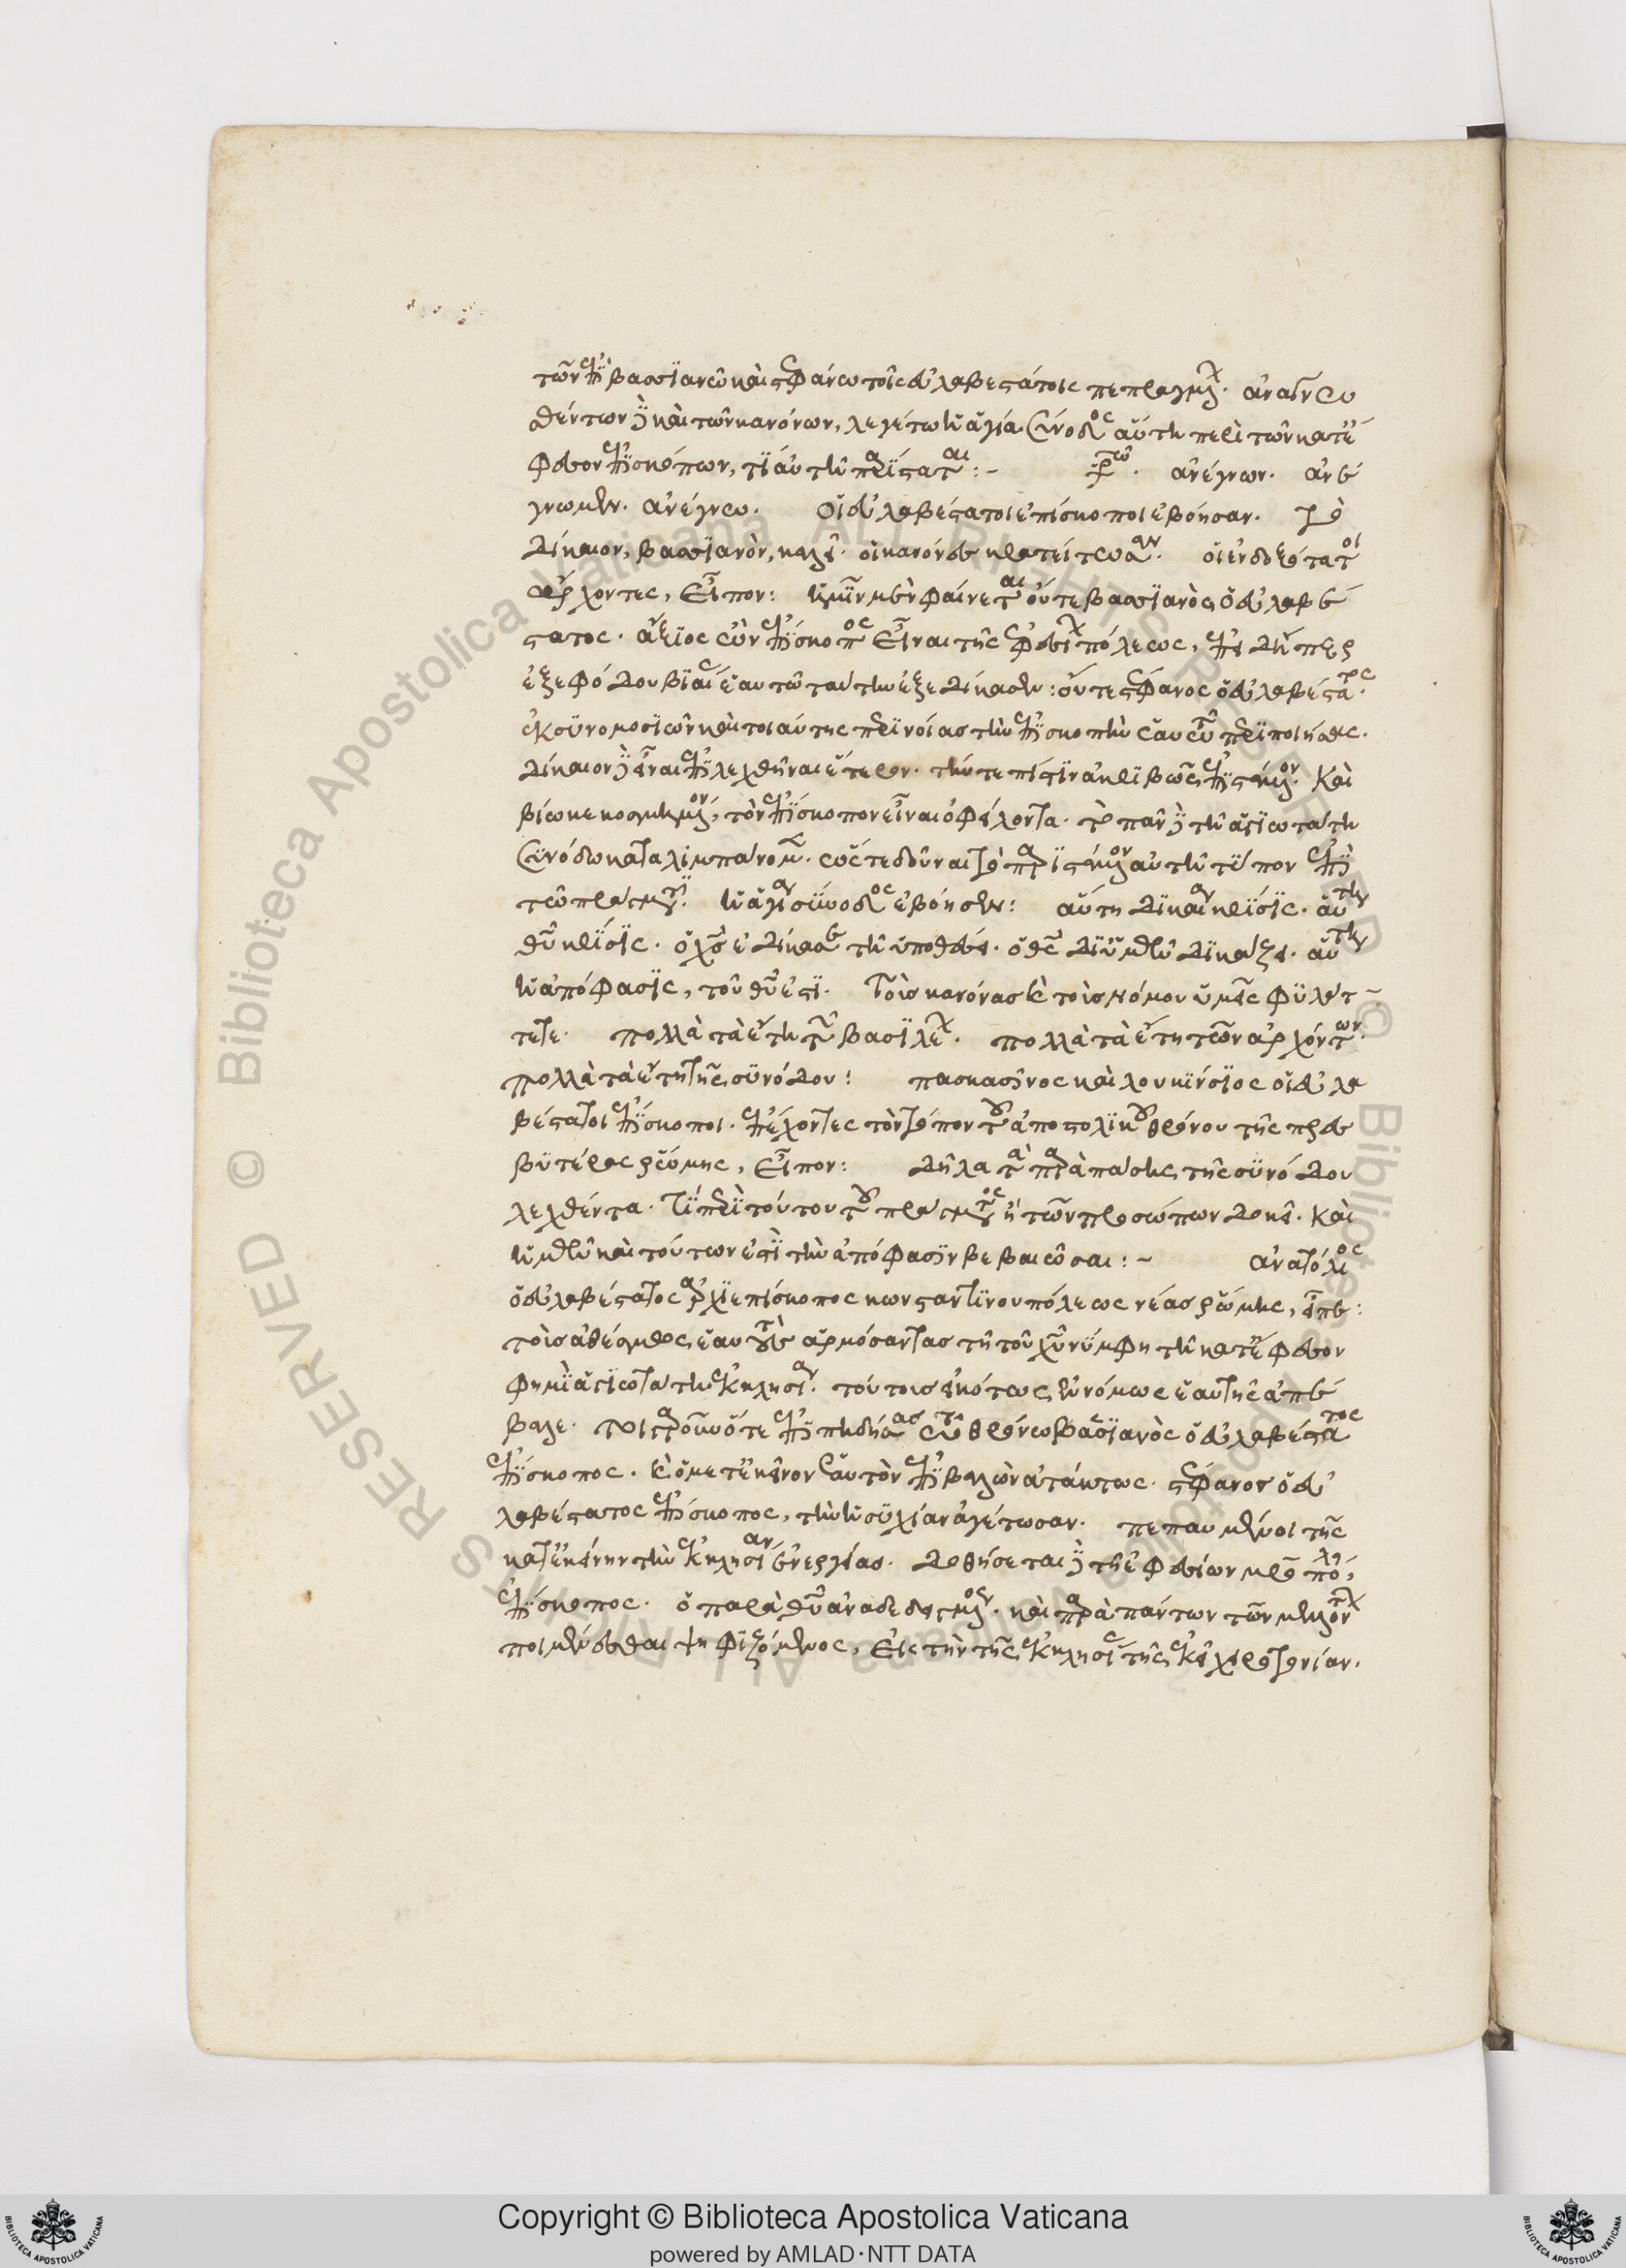 τῶν ἐπὶ βασσιανῶ καὶ στεφάνω τοῖς εὐλαβεστάτοις πεπραγμένων. ἀναγνω
σθέντων δὲ καὶ τῶν κανόνων, λεγέτω ἡ ἁγία σύνοδος αὕτη περὶ τῶν κατ' ἔ
φεσον ἐπισκόπων, τί αὐτῆ παρίσταται:- ἀνέγνων. ἀνέ
γνωμεν. ἀνέγνω. Οἱ εὐλαβέστατοι ἐπίσκοποι ἐβόησαν. τὸ
δίκαιον, βασσιανὸν, καλεῖ. οἱ κανόνες κρατείτωσαν. οἱ ἐνδοξότατοι
ἄρχοντες, εἶπον: ἡμῖν μὲν φαίνεται οὔτε βασσιανὸς ὁ εὐλαβέ
στατος. ἄξιος ὢν ἐπίσκοπος εἶναι τῆς ἐφεσίων πόλεως, ἐπειδήπερ
ἐξ ἐφόδου βιαίας ἑαυτῶ ταύτην ἐξεδίκασεν: οὔτε στέφανος ὁ εὐλαβέστατος.
ἐκ συνομοσιῶν καὶ τοιαύτης περινοίας τὴν ἐπισκοπὴν ἑαυτῶ περιποιήσας.
δίκαιον δὲ εἶναι ἐπιλεχθῆναι ἕτερον. τήν τε πίστιν ἀκριβῶς ἐπιστάμενον. καὶ
βίω κεκοσμημένον, τὸν ἐπίσκοπον εἶναι ὀφείλοντα. τὸ πᾶν δὲ τῆ ἁγιωτάτη
συνόδω καταλιμπάνομεν. ὥστε δοῦναι τὸ παριστάμενον αὐτῆ τύπον ἐπὶ
τῶ πράγματι. ἡ ἁγία σύνοδος ἐβόησεν: αὕτη δικαία κρίσις. αὕτη
θεοῦ κρίσις. ὁ χριστὸς ἐδίκασε τῆ ὑποθέσει. ὁ θεὸς δι' ὑμῶν δικάζει. αὕτη
ἡ ἀπόφασις, τοῦ θεοῦ ἐστι. τοὺς κανόνας καὶ τοὺς νόμους ὑμεῖς φυλάτ
τετε. πολλὰ τὰ ἔτη τῶν βασιλέων. πολλὰ τὰ ἔτη τῶν ἀρχόντων.
πολλὰ τὰ ἔτη τῆς συνόδου: πασκασῖνος καὶ λουκίνσιος οἱ εὐλα
βέστατοι ἐπίσκοποι. ἐπέχοντες τὸν τόπον τοῦ ἀποστολικοῦ θρόνου τῆς πρεσ
βυτέρας ῥώμης, εἶπον: δῆλα τὰ παρὰ πάσης τῆς συνόδου
λεχθέντα. τί περὶ τούτου τοῦ πράγματος ἢ τῶν προσώπων δοκεῖ. καὶ
ἡμῶν καὶ τούτων ἐστὶ τὴν ἀπόφασιν βεβαιῶσαι:- ἀνατόλιος
ὁ εὐλαβέστατος ἀρχιεπίσκοπος κωνσταντινουπόλεως νέας ῥώμης, εἶπε:
τοὺς ἀθέσμως ἑαυτοὺς ἁρμόσαντας τῆ τοῦ χριστοῦ νύμφη τῆ κατ' ἔφεσον
φημὶ ἁγιωτάτη ἐκκλησία. τούτους εἰκότως ἐννόμως ἑαυτῆς ἀπέ
βαλε. τοιγαροῦν ὅτε ἐπιπηδήσας τῶ θρόνω βασσιανὸς ὁ εὐλαβέστατος
ἐπίσκοπος. καὶ ὁ μετ' ἐκεῖνον ἑαυτὸν ἐπιβαλὼν ἀτάκτως. στέφανος ὁ εὐ
λαβέστατος ἐπίσκοπος, τὴν ἡσυχίαν ἀγέτωσαν. πεπαυμένοι τῆς
κατ' ἐκείνην τὴν ἐκκλησίαν ἐνεργείας. δοθήσεται δὲ τῆ ἐφεσίων μητροπόλει,
ἐπίσκοπος. ὁ παρὰ θεοῦ ἀναδεδειγμένος. καὶ παρὰ πάντων τῶν μελλόντων
ποιμαίνεσθαι ψηφιζόμενος, εἰς τὴν τῆς ἐκκλησίας τῆς ἐκεῖ χειροτονίαν.
Copyright © Biblioteca Apostolica Vaticana
powered by AMLAD·NTT DATA